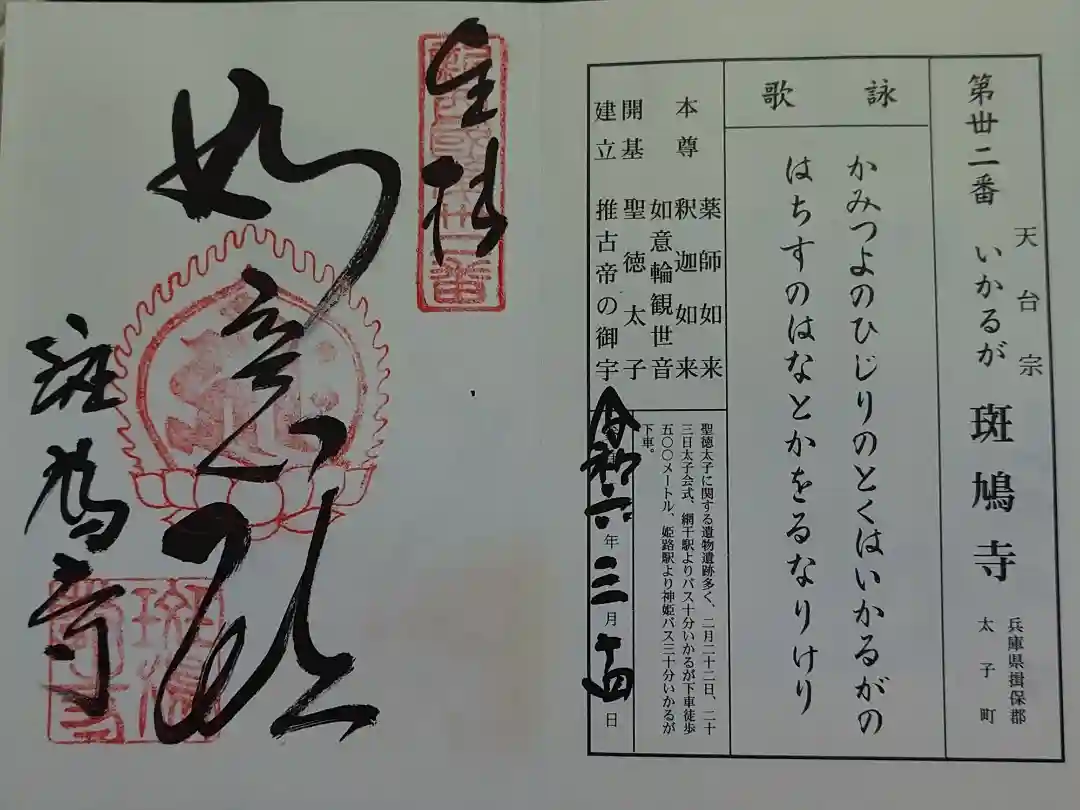 第丗二番 いかるが 斑鳩寺
天台宗
兵庫県揖保郡
太子町
詠歌
かみつよのひじりのとくはいかるがの
はちすのはなとかをるなりけり
本尊
薬師如来
釈迦如来
如意輪観世音
開基 聖徳太子
建立 推古帝の御宇
聖徳太子に関する遺物遺跡多く、二月二十二日、二十
三日太子会式、網干駅よりバス十分いかるが下車徒歩
五〇〇メートル、姫路駅より神姫バス三十分いかるが
下車。
令和六年三月十四日
奉拝
如意輪
斑鳩寺